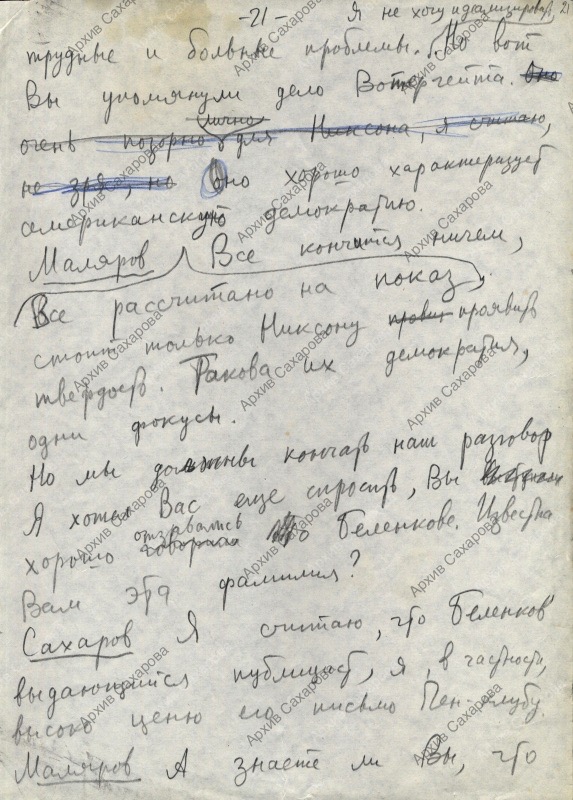 -21-
Я не хочу идеализировать, 21
трудные и больные проблемы. Но вот
Вы упомянули дело Вотергейта. Оно
лично
очень позорно для Никсона, я считаю,
не зря, но Оно хорошо характеризует
американскую демократию.
Маляров Все кончится ничем,
Все рассчитано на показ,
стоит только Никсону проявить
твердость. Такова их демократия,
одни фокусы.
Но мы должны кончать наш разговор
Я хотел Вас еще спросить, Вы
отзывались
хорошо говорили о Беленкове. Известна
Вам эта фамилия?
Сахаров Я считаю, что Беленков
выдающийся публицист, я, в частности,
высоко ценю его письмо Пен-клубу.
Маляров А знаете ли Вы, что
Архив Сахарова